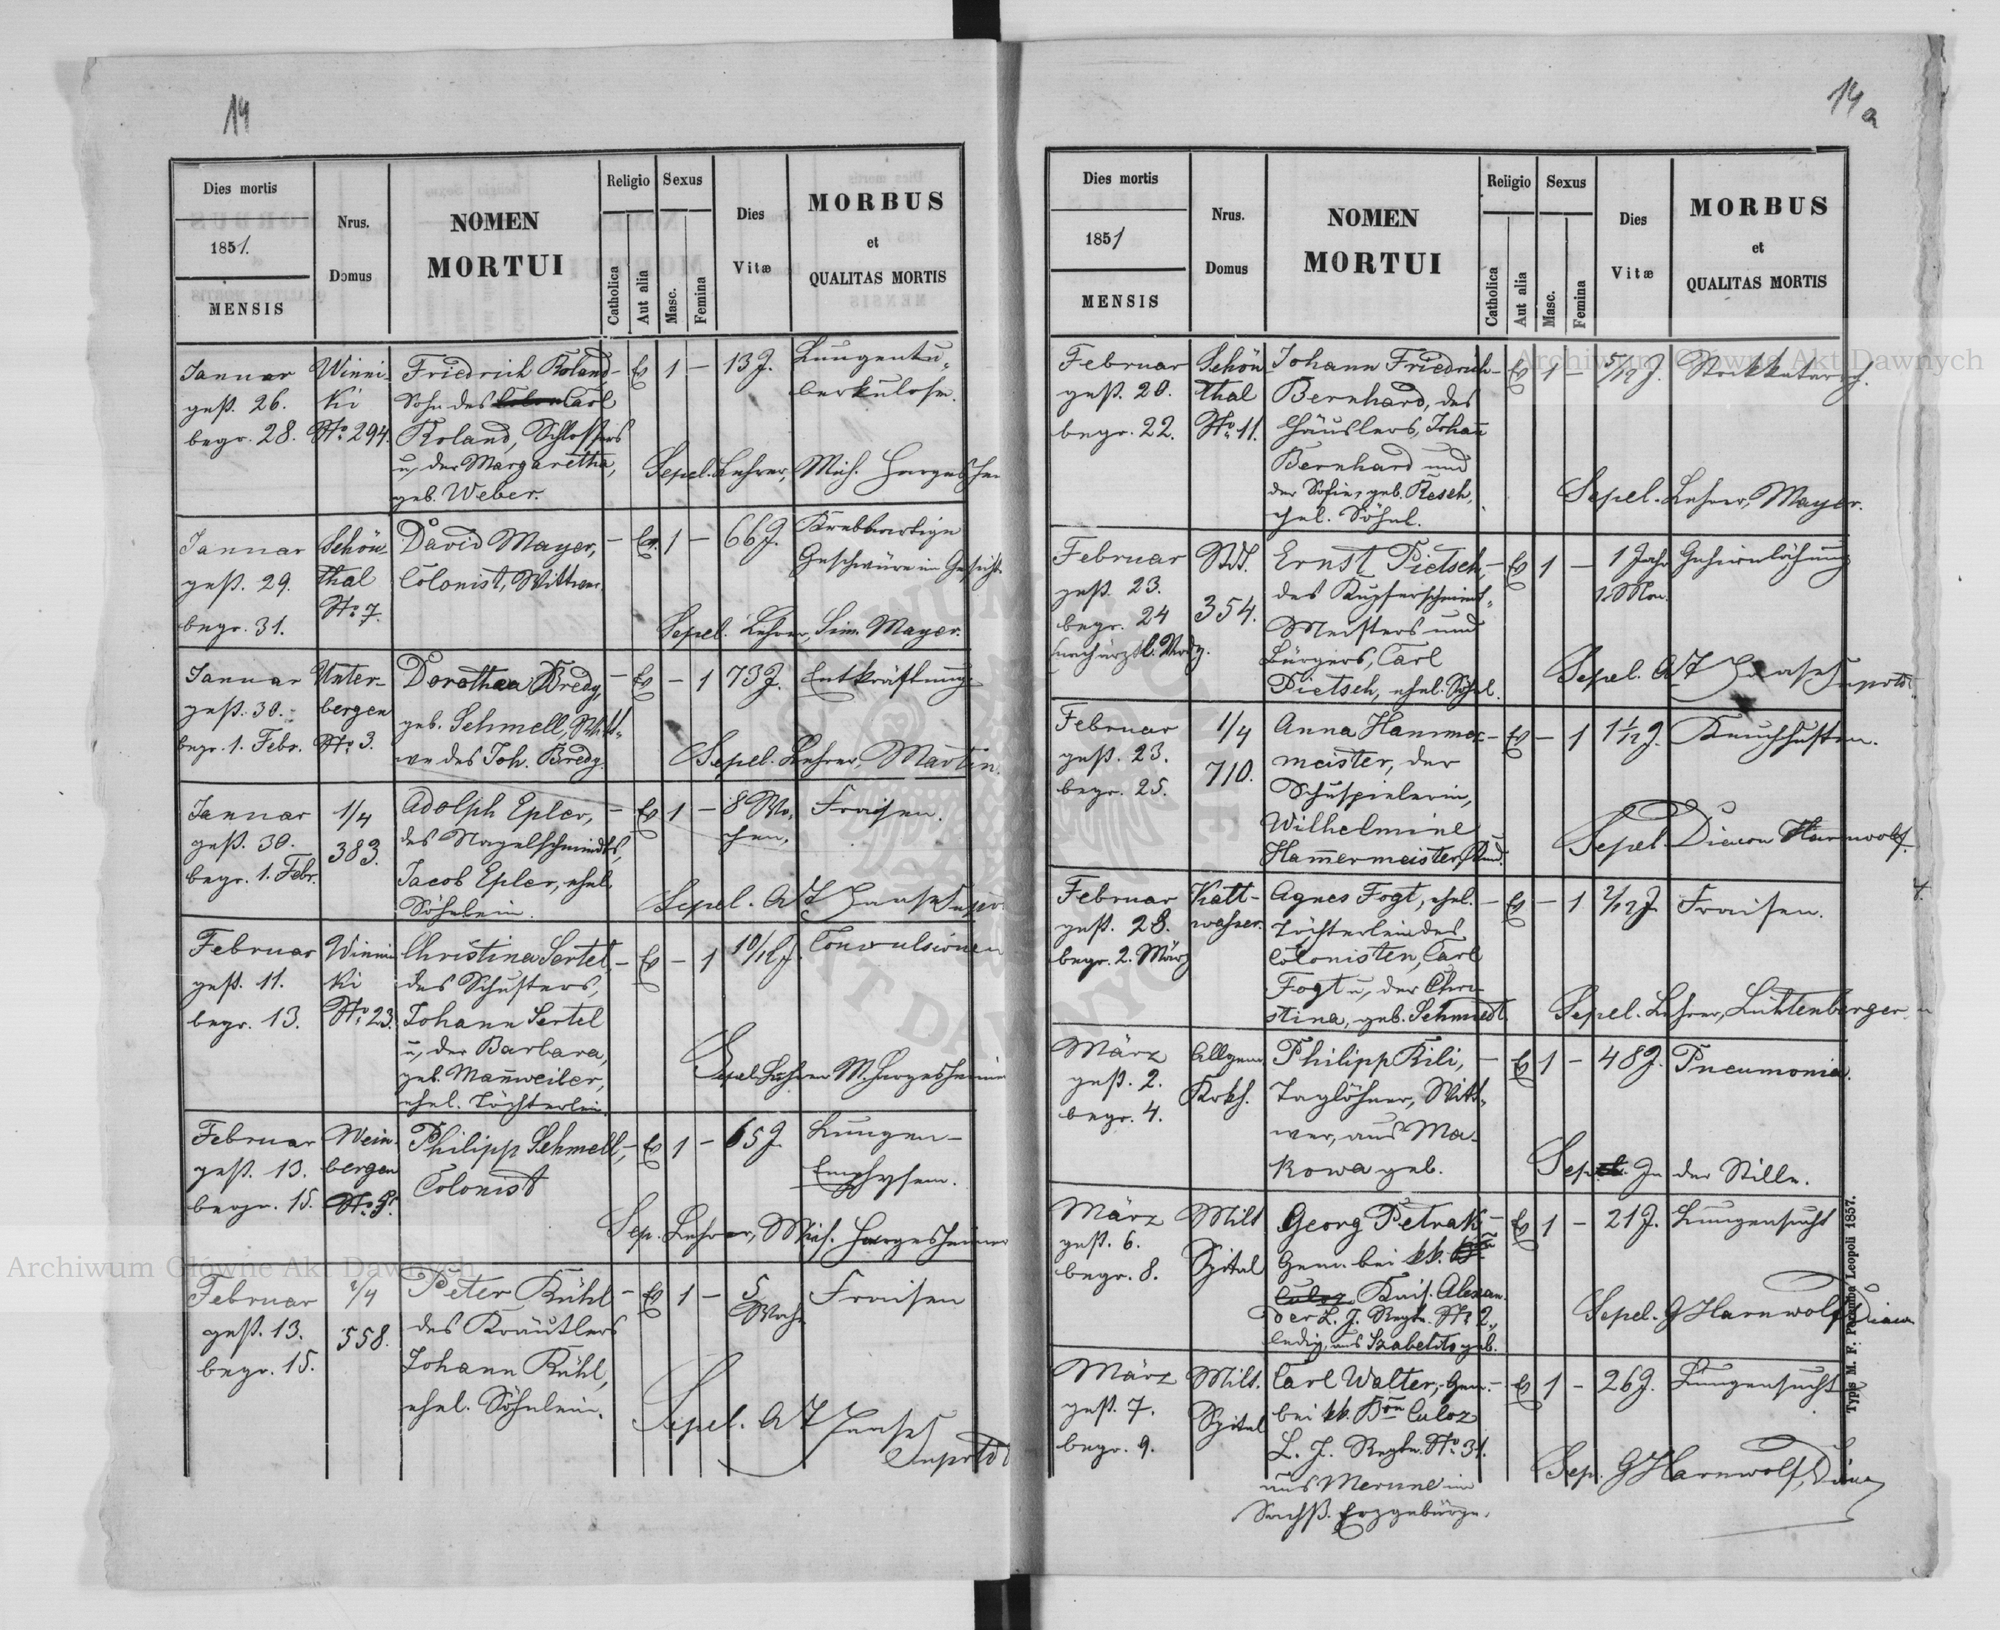 14
Dies mortis
1851.
MENSIS
Nrus.
Domus
NOMEN
MORTUI
Religio
Catholica
Aut alia
Sexus
Masc.
Femina
Dies
Vitæ
MORBUS
et
QUALITAS MORTIS
Januar
gest. 26.
begr. 28.
Winni-
ki
No. 294.
Friedrich Roland,
Sohn des Carl
Roland, Schlossers
u. der Margaretha,
geb. Weber.
– Ev 1 – 13 J.
Lungentu-
berkulose.
Sepel. Lehrer, Mich.
Januar
gest. 29.
begr. 31.
Schön-
thal
No. 7.
David Mayer,
Colonist, Wittwer.
– Ev. 1 – 66 J.
Krebsartige
Geschwüre im Gesicht
Sepel. Lehrer, Sim. Mayer.
Januar
gest. 30.
begr. 1. Febr.
Unter-
bergen
No. 3.
Dorothea Bredy,
geb. Schmell, Witt-
we des Joh. Bredy.
– Ev – 1 73 J.
Entkräftung.
Sepel. Lehrer, Martin.
Januar
gest. 30.
begr. 1. Febr.
1/4
383.
Adolph Epler,
des Nagelschmieds,
Jacob Epler, ehel.
Söhnlein.
– Ev 1 – 8 Wo-
chen,
Fraisen.
Sepel.
Februar
gest. 11.
begr. 13.
Winni
ki
No. 23.
Christina Sertel,
des Schusters,
Johann Sertel
u. der Barbara,
geb. Mannweiler,
ehel. Töchterlein.
– Ev – 1 10/12 J.
Convulsionen
Sepel. Lehrer M. Hargesheimer
Februar
gest. 13.
begr. 15.
Wein-
bergen
Philipp Schmell,
Colonist
– Ev 1 – 65 J.
Lungen-
Emphysem.
Sep. Lehrer, Mich. Hargesheimer
Februar
gest. 13.
begr. 15.
2/4
558.
Peter Kühl
des Kräutlers
Johann Kühl,
ehel. Söhnlein.
– Ev 1 – 5
Woch.
Fraisen
Sepel.
14a
Dies mortis
1851
MENSIS
Nrus.
Domus
NOMEN
MORTUI
Religio
Catholica
Aut alia
Sexus
Masc.
Femina
Dies
Vitæ
MORBUS
et
QUALITAS MORTIS
Februar
gest. 20.
begr. 22.
Schön
thal
No. 11.
Johann Friedrich
Bernhard, des
Häuslers, Johann
Bernhard und
der Sofie, geb. Resch,
ehel. Söhnl.
– Ev 1 – 5/12 J.
Stickkatarrh.
Sepel. Lehrer, Mayer.
Februar
gest. 23.
begr. 24
Stdt.
354.
Ernst Pietsch,
des Kupferschmied-
Meisters und
Bürgers, Carl
Pietsch, ehel. Söhnl.
– Ev 1 – 1 Jahr
Gehirnlähmung
Sepel.
Februar
gest. 23.
begr. 25.
1/4
710.
Anna Hammer-
meister, der
Schuspielerin,
Wilhelmine
Hammermeister, Kind.
– Ev – 1 1 1/12 J.
Keuchhusten.
Sepel. Diacon Harnwolf.
Februar
gest. 28.
begr. 2. März
Kalt-
wasser.
Agnes Fogt, ehel.
Töchterlein des
Colonisten, Carl
Fogt u. der Chri-
stina, geb. Schmiedt.
– Ev – 1 2/12 J.
Fraisen.
Sepel. Lehrer, Lichtenberger.
März
gest. 2.
begr. 4.
Allgem.
Krkh.
Philipp Kili,
Taglöhner, Witt-
wer, aus Ma-
kowa geb.
– Ev 1 – 48 J.
Pneumonia.
Sep. In der Stille.
März
gest. 6.
begr. 8.
Milt
Spital
Georg Petrak
Gem. bei kk.
Kais. Alexan-
der L. I. Regte. No. 2,
ledig, aus
– Ev 1 – 21 J.
Lungensucht
Sepel. G Harnwolf Diacon
März
gest. 7.
begr. 9.
Milt.
Spital
Carl Walter, Gem.
bei kk. Bon Culoz
L. I. Regte. No. 31.
aus Merune im
Sächß. Erzgebürge.
– Ev 1 – 26 J.
Lungensucht
Sep. G Harnwolf, Diac
Typis M. F. Poremba Leopoli 1857.
Archiwum Główne Akt Dawnych
Archiwum Główne Akt Dawnych